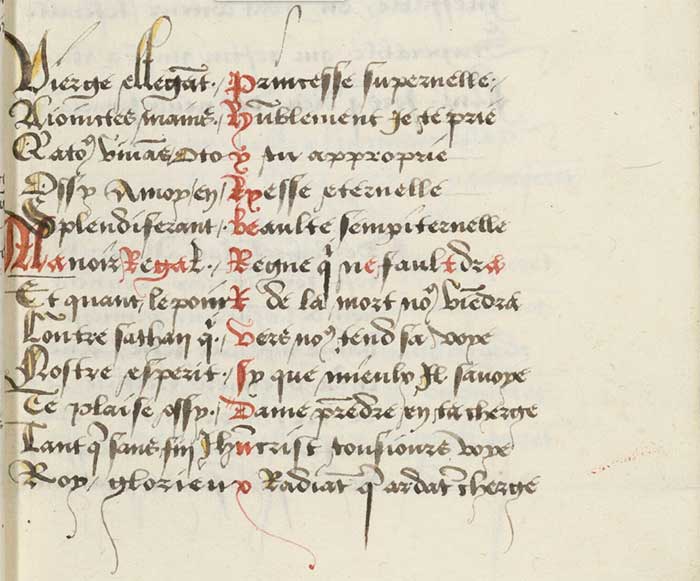 Vierge ellegāt / Princesse supernelle /
A ioinctes mains / Hūblement Je te prie
viuās tu approprie
Ossy A moy en / Lyesse eternelle
Splendiferant / Beaulte sempiternelle
Manoir Regal / Regne q̄ ne fauldra
Et quant le de la mort noꝰ viēdra
Contre sathan q̄ / vers noꝰ tend sa voye
Nostre esperit / Sy que mieulx Il / savoye
Te plaise ossy / Dame prēdre en ta cherge
Tant q̄ sans fin Jhūcrist tousiours voye
Roy / glorieux Radiāt q̄ ardāt cherge